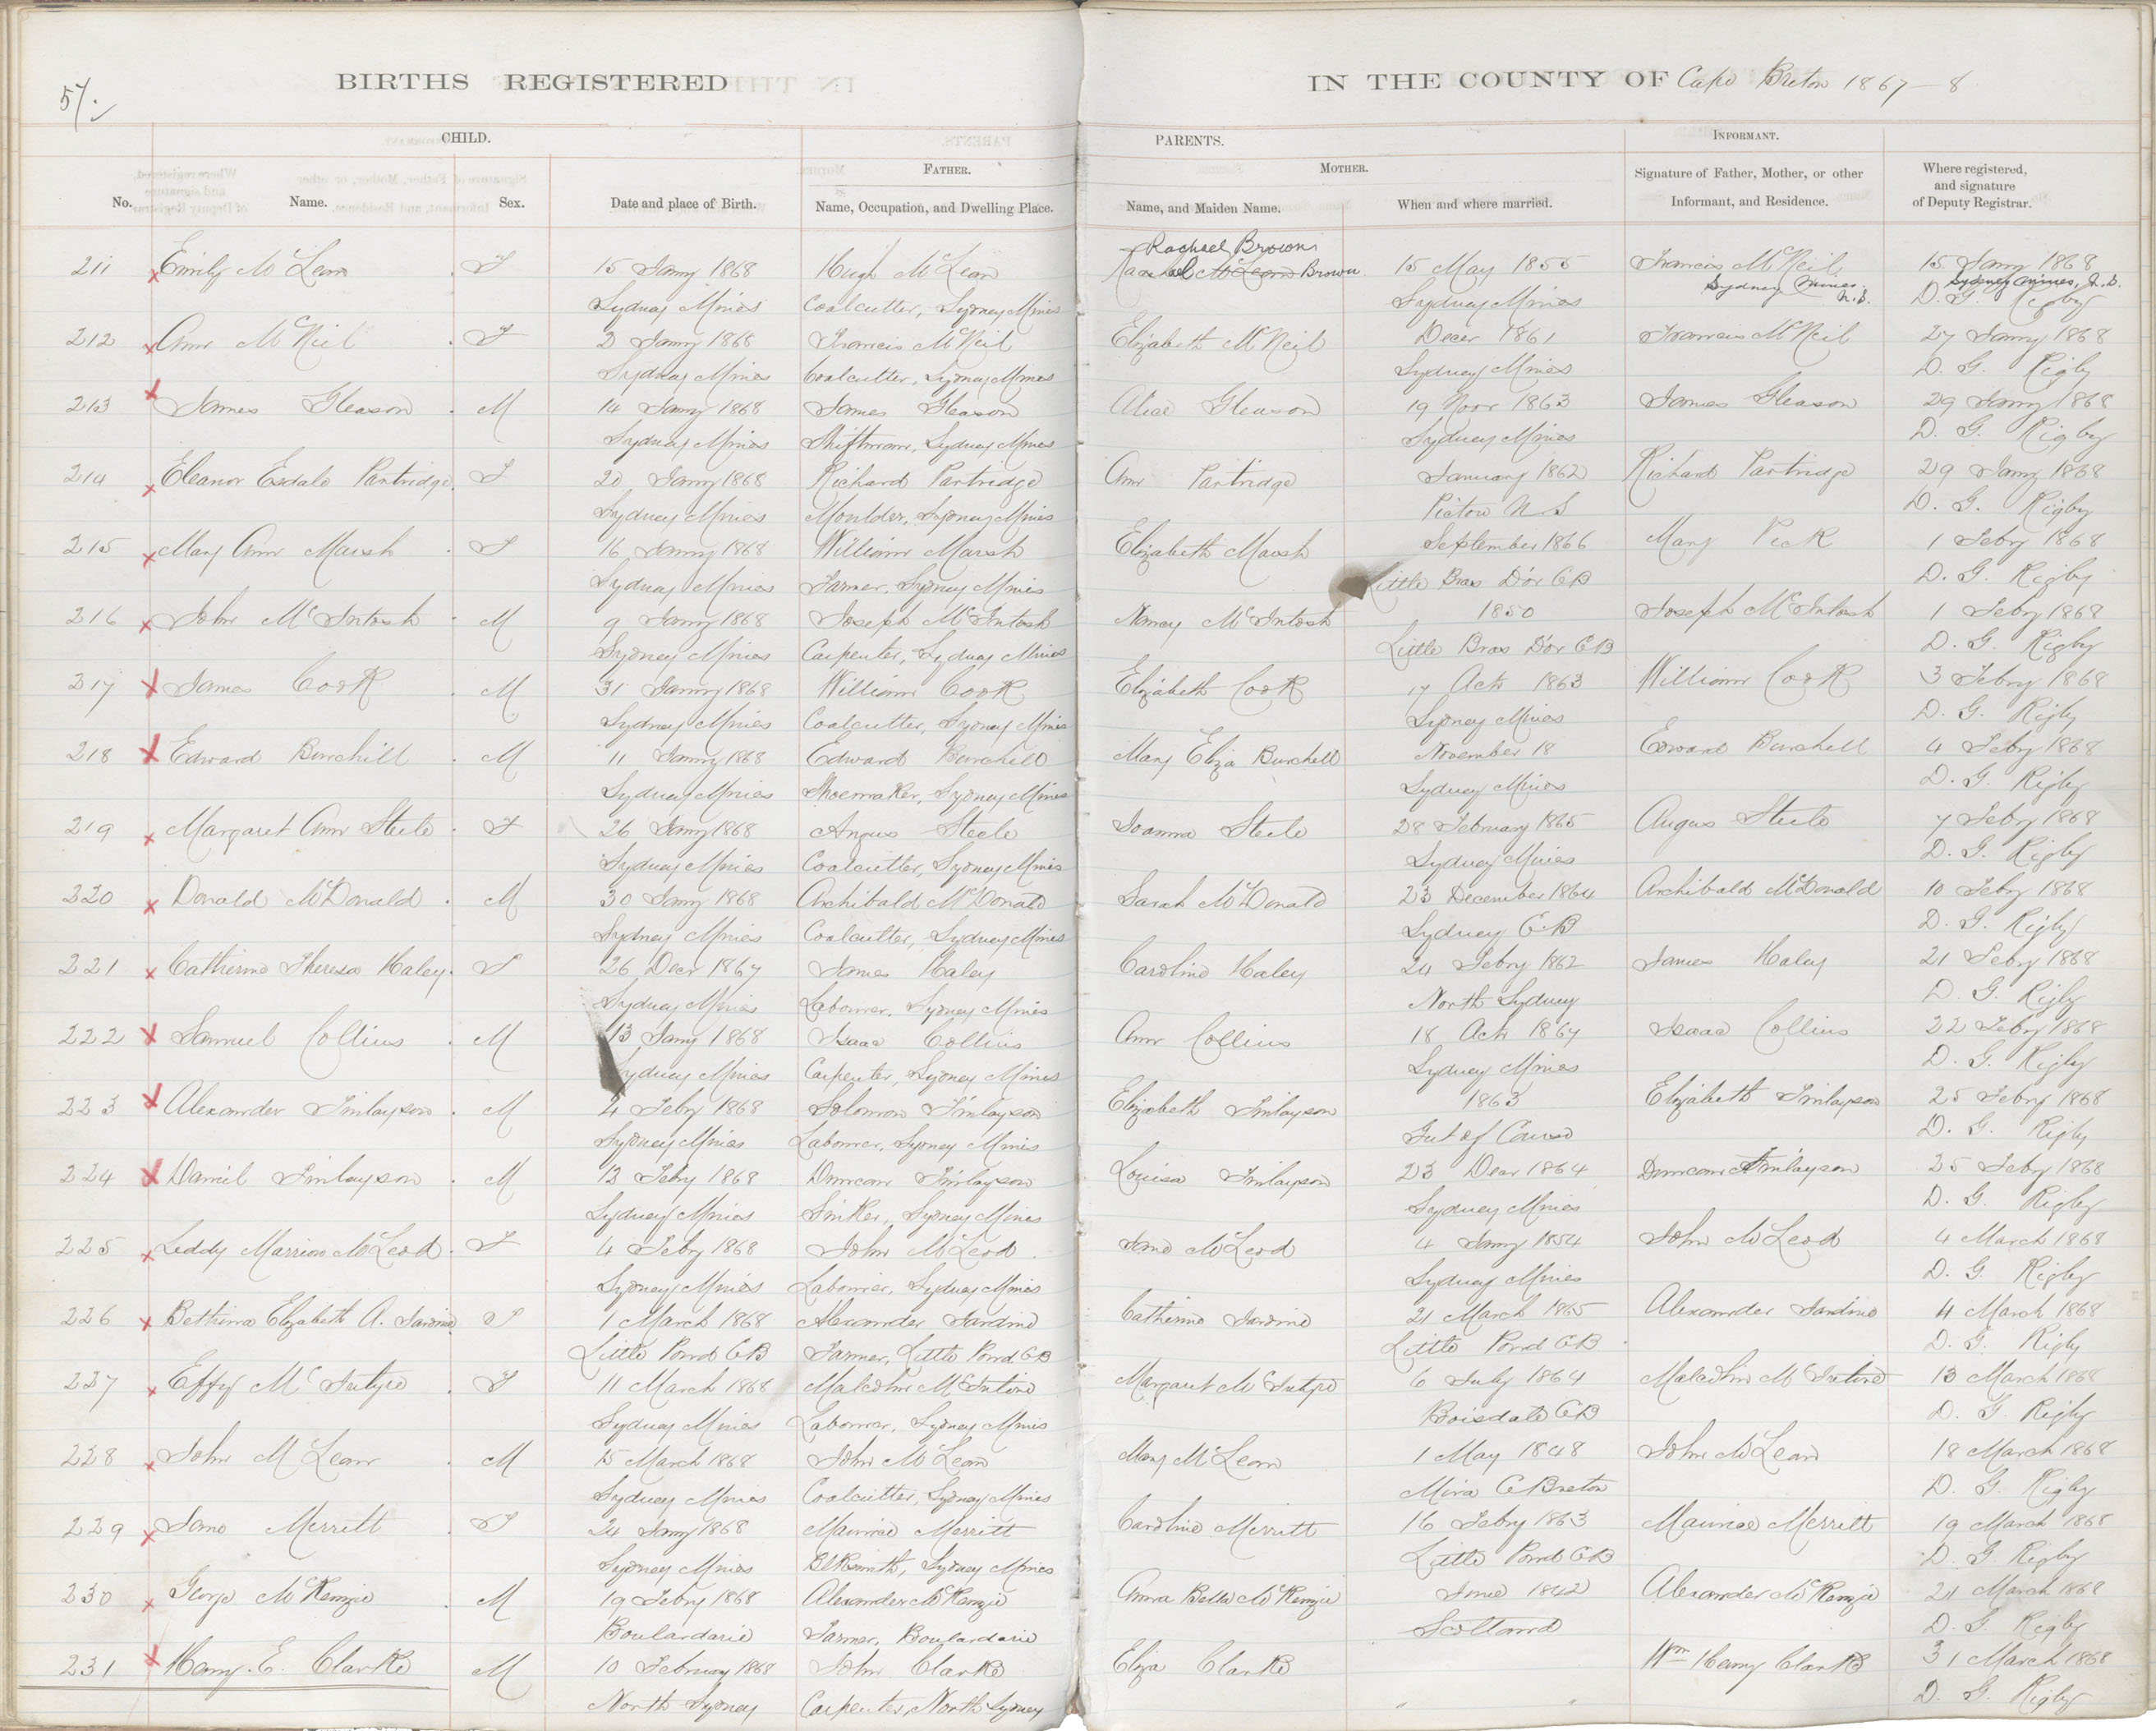 57.
BIRTHS REGISTERED IN THE COUNTY OF Cape Breton 1867-8
CHILD. PARENTS. INFORMANT.
FATHER. MOTHER.
No. Name. Sex. Date and place of Birth. Name, Occupation, and Dwelling Place. Name, and Maiden Name. When and where married. Signature of Father, Mother, or other Informant, and Residence. Where registered, and signature of Deputy Registrar.
Rachael Brown
211 Emily McLean F 15 Jany 1868 Hugh McLean Rachael McLean Brown 15 May 1855 Francis McNeil 15 Jany 1868
Sydney Mines Coalcutter, Sydney Mines Sydney Mines Sydney Mines N.S. Sydney Mines, N.S. D. G. Rigby
212 Ann McNeil F 2 Jany 1868 Francis McNeil Elizabeth McNeil Decer 1861 Francis McNeil 27 Jany 1868
Sydney Mines Coalcutter, Sydney Mines Sydney Mines D. G. Rigby
213 James Gleason M 14 Jany 1868 James Gleason Alice Gleason 19 Novr 1863 James Gleason 29 Jany 1868
Sydney Mines Shiftman, Sydney Mines Sydney Mines D. G. Rigby
214 Eleanor Esdale Partridge F 20 Jany 1868 Richard Partridge Ann Partridge January 1862 Richard Partridge 29 Jany 1868
Sydney Mines Moulder, Sydney Mines Pictou N S D. G. Rigby
215 Mary Ann Marsh F 16 Jany 1868 William Marsh Elizabeth Marsh September 1866 Mary Peck 1 Feby 1868
Sydney Mines Farmer, Sydney Mines Little Bras D'or CB D. G. Rigby
216 John McIntosh M 9 Jany 1868 Joseph McIntosh Nancy McIntosh 1850 Joseph McIntosh 1 Feby 1868
Sydney Mines Carpenter, Sydney Mines Little Bras D'or CB D. G. Rigby
217 James Cook M 31 Jany 1868 William Cook Elizabeth Cook 17 Octr 1863 William Cook 3 Feby 1868
Sydney Mines Coalcutter, Sydney Mines Sydney Mines D. G. Rigby
218 Edward Burchill M 11 Jany 1868 Edward Burchell Mary Eliza Burchell November 18 Edward Burchell 4 Feby 1868
Sydney Mines Shoemaker, Sydney Mines Sydney Mines D. G. Rigby
219 Margaret Ann Steele F 26 Jany 1868 Angus Steele Joanna Steele 28 February 1865 Angus Steele 7 Feby 1868
Sydney Mines Coalcutter, Sydney Mines Sydney Mines D. G. Rigby
220 Donald McDonald M 30 Jany 1868 Archibald McDonald Sarah McDonald 23 December 1864 Archibald McDonald 10 Feby 1868
Sydney Mines Coalcutter, Sydney Mines Sydney C.B D. G. Rigby
221 Catherine Theresa Haley F 26 Decr 1867 James Haley Caroline Haley 24 Feby 1862 James Haley 21 Feby 1868
Sydney Mines Labourer, Sydney Mines North Sydney D. G. Rigby
222 Samuel Collins M 13 Jany 1868 Isaac Collins Ann Collins 18 Octr 1867 Isaac Collins 22 Feby 1868
Sydney Mines Carpenter, Sydney Mines Sydney Mines D. G. Rigby
223 Alexander Finlayson M 4 Feby 1868 Solomon Finlayson Elizabeth Finlayson 1863 Elizabeth Finlayson 25 Feby 1868
Sydney Mines Labourer, Sydney Mines Gut of Canso D. G. Rigby
224 Daniel Finlayson M 12 Feby 1868 Duncan Finlayson Louisa Finlayson 23 Decr 1864 Duncan Finlayson 25 Feby 1868
Sydney Mines Sinker, Sydney Mines Sydney Mines D. G. Rigby
225 Leddy Marrion McLeod F 4 Feby 1868 John McLeod Jane McLeod 4 Jany 1854 John McLeod 4 March 1868
Sydney Mines Labourer, Sydney Mines Sydney Mines D. G. Rigby
226 Bethina Elizabeth A. Jardine F 1 March 1868 Alexander Jardine Catherine Jardine 21 March 1865 Alexander Jardine 4 March 1868
Little Pond CB Farmer, Little Pond CB Little Pond CB D. G. Rigby
227 Effy McIntyre F 11 March 1868 Malcolm McIntire Margaret McIntyre 6 July 1864 Malcolm McIntire 13 March 1868
Sydney Mines Labourer, Sydney Mines Boisdale CB D. G. Rigby
228 John McLean M 15 March 1868 John McLean Mary McLean 1 May 1848 John McLean 18 March 1868
Sydney Mines Coalcutter, Sydney Mines Mira C Breton D. G. Rigby
229 Jane Merritt F 24 Jany 1868 Maurice Merritt Caroline Merritt 16 Feby 1863 Maurice Merritt 19 March 1868
Sydney Mines Blksmith, Sydney Mines Little Pond CB D. G Rigby
230 George McKenzie M 19 Feby 1868 Alexander McKenzie Anna Bella McKenzie June 1842 Alexander McKenzie 21 March 1868
Boulardarie Farmer, Boulardarie Scotland D. G. Rigby
231 Henry. E. Clarke M 10 February 1868 John Clarke Eliza Clarke Wm Henry Clarke 31 March 1868
North Sydney Carpenter, North Sydney " " D. G. Rigby